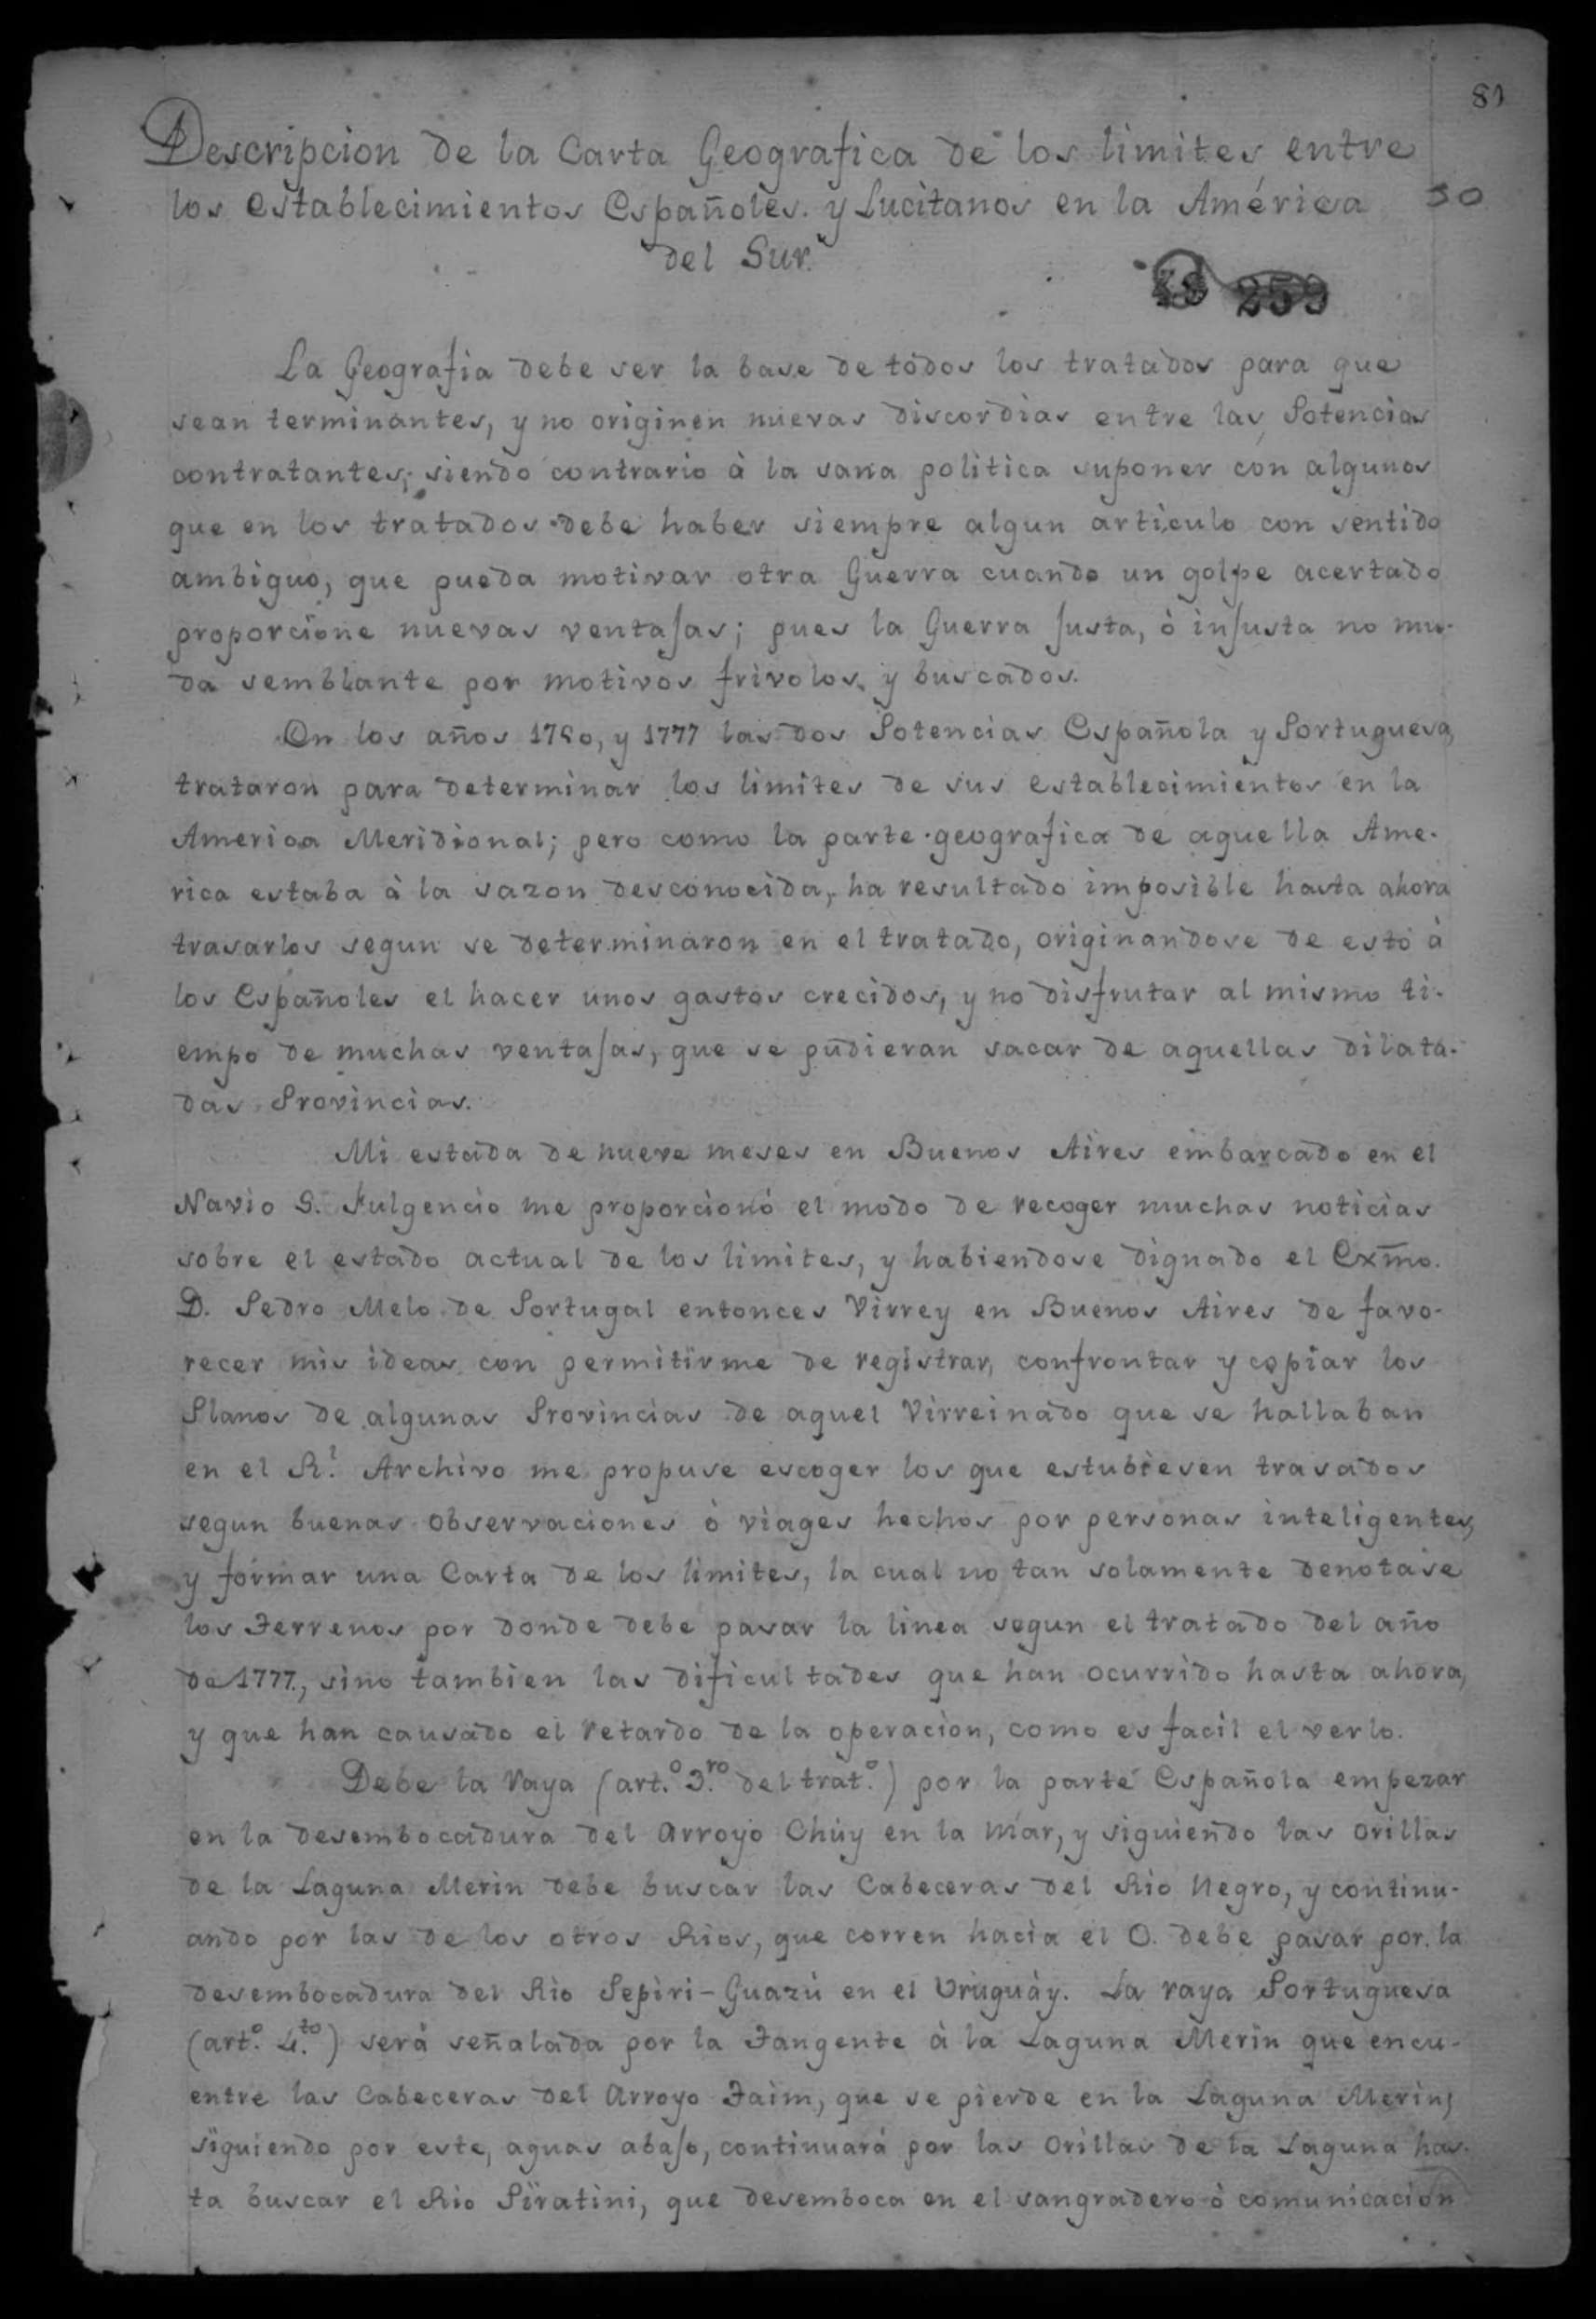 81
Descripcion de la Carta Geografica de los limites entre
los establecimientos Españoles y Lucitanos en la América
30
del Sur.
259
La Geografia debe ser la base de tódos los tratados para que
sean terminantes, y no originen nuevas discordias entre las Potencias
contratantes; siendo contrario à la sana politica suponer con algunos
que en los tratados debe haber siempre algun articulo con sentido
ambiguo, que pueda motivar otra Guerra cuando un golpe acertado
proporcione nuevas ventajas; pues la Guerra justa, ò injusta no mu-
da semblante por motivos frivolos y buscados.
En los años 1750, y 1777 las dos Potencias Española y Portuguesa,
trataron para determinar los limites de sus establecimientos en la
America Meridional; pero como la parte geografica de aquella Ame-
rica estaba à la sazon desconocida, ha resultado imposible hasta ahora
trasarlos segun se determinaron en el tratado, originandose de estò à
los Españoles el hacer unos gastos crecidos, y no disfrutar al mismo ti-
empo de muchas ventajas, que se pudieran sacar de aquellas dilata-
das Provincias.
Mi estada de nueve meses en Buenos Aires embarcado en el
Navio S. Fulgencio me proporcionó el modo de recoger muchas noticias
sobre el estado actual de los limites, y habiendose dignado el Exmo.
D. Pedro Melo de Portugal entonces Virrey en Buenos Aires de favo-
recer mis ideas con permitirme de registrar, confrontar y copiar los
Planos de algunas Provincias de aquel Virreinado que se hallaban
en el Rl. Archivo me propuse escoger los que estubiesen trasados
segun buenas observaciones ò viages hechos por personas inteligentes,
y formar una Carta de los limites, la cual no tan solamente denotase
los Terrenos por donde debe pasar la linea segun el tratado del año
de 1777., sino tambien las dificultades que han ocurrido hasta ahora,
y que han causado el retardo de la operacion, como es facil el verlo.
Debe la raya (art.º 3.ro del trat.º) por la parte Española empezar
en la desembocadura del Arroyo Chúy en la Mar, y siguiendo las orillas
de la Laguna Merin debe buscar las Cabeceras del Rio Negro, y continu-
ando por las de los otros Rios, que corren hacia el O. debe pasar por la
desembocadura del Rio Pepiri-Guazú en el Uruguáy. La raya Portuguesa
(art.º 4.to) será señalada por la Tangente à la Laguna Merin que encu-
entre las Cabeceras del Arroyo Taim, que se pierde en la Laguna Merin;
siguiendo por este, aguas abajo, continuará por las Orillas de la Laguna has-
ta buscar el Rio Piratini, que desemboca en el sangradero ò comunicacion